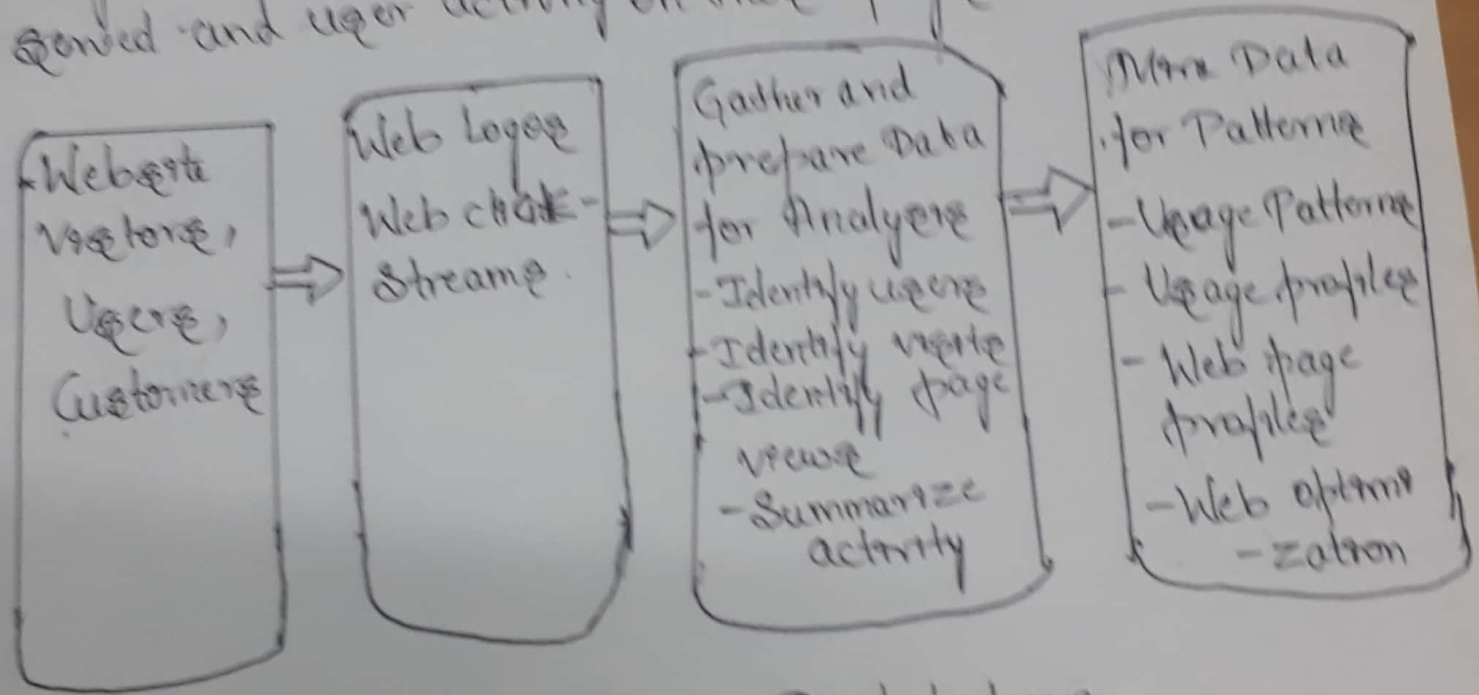 and user activity on
Website
Visitors,
Users,
Customers
Web Logs
Web click-
Streams.
Gather and
prepare Data
for Analysis
- Identify users
- Identify visits
- Identify page
views
- Summarize
activity
Mine Data
for Patterns
- Usage Patterns
- Usage profiles
- Web page
profiles
- Web optimi
- zation